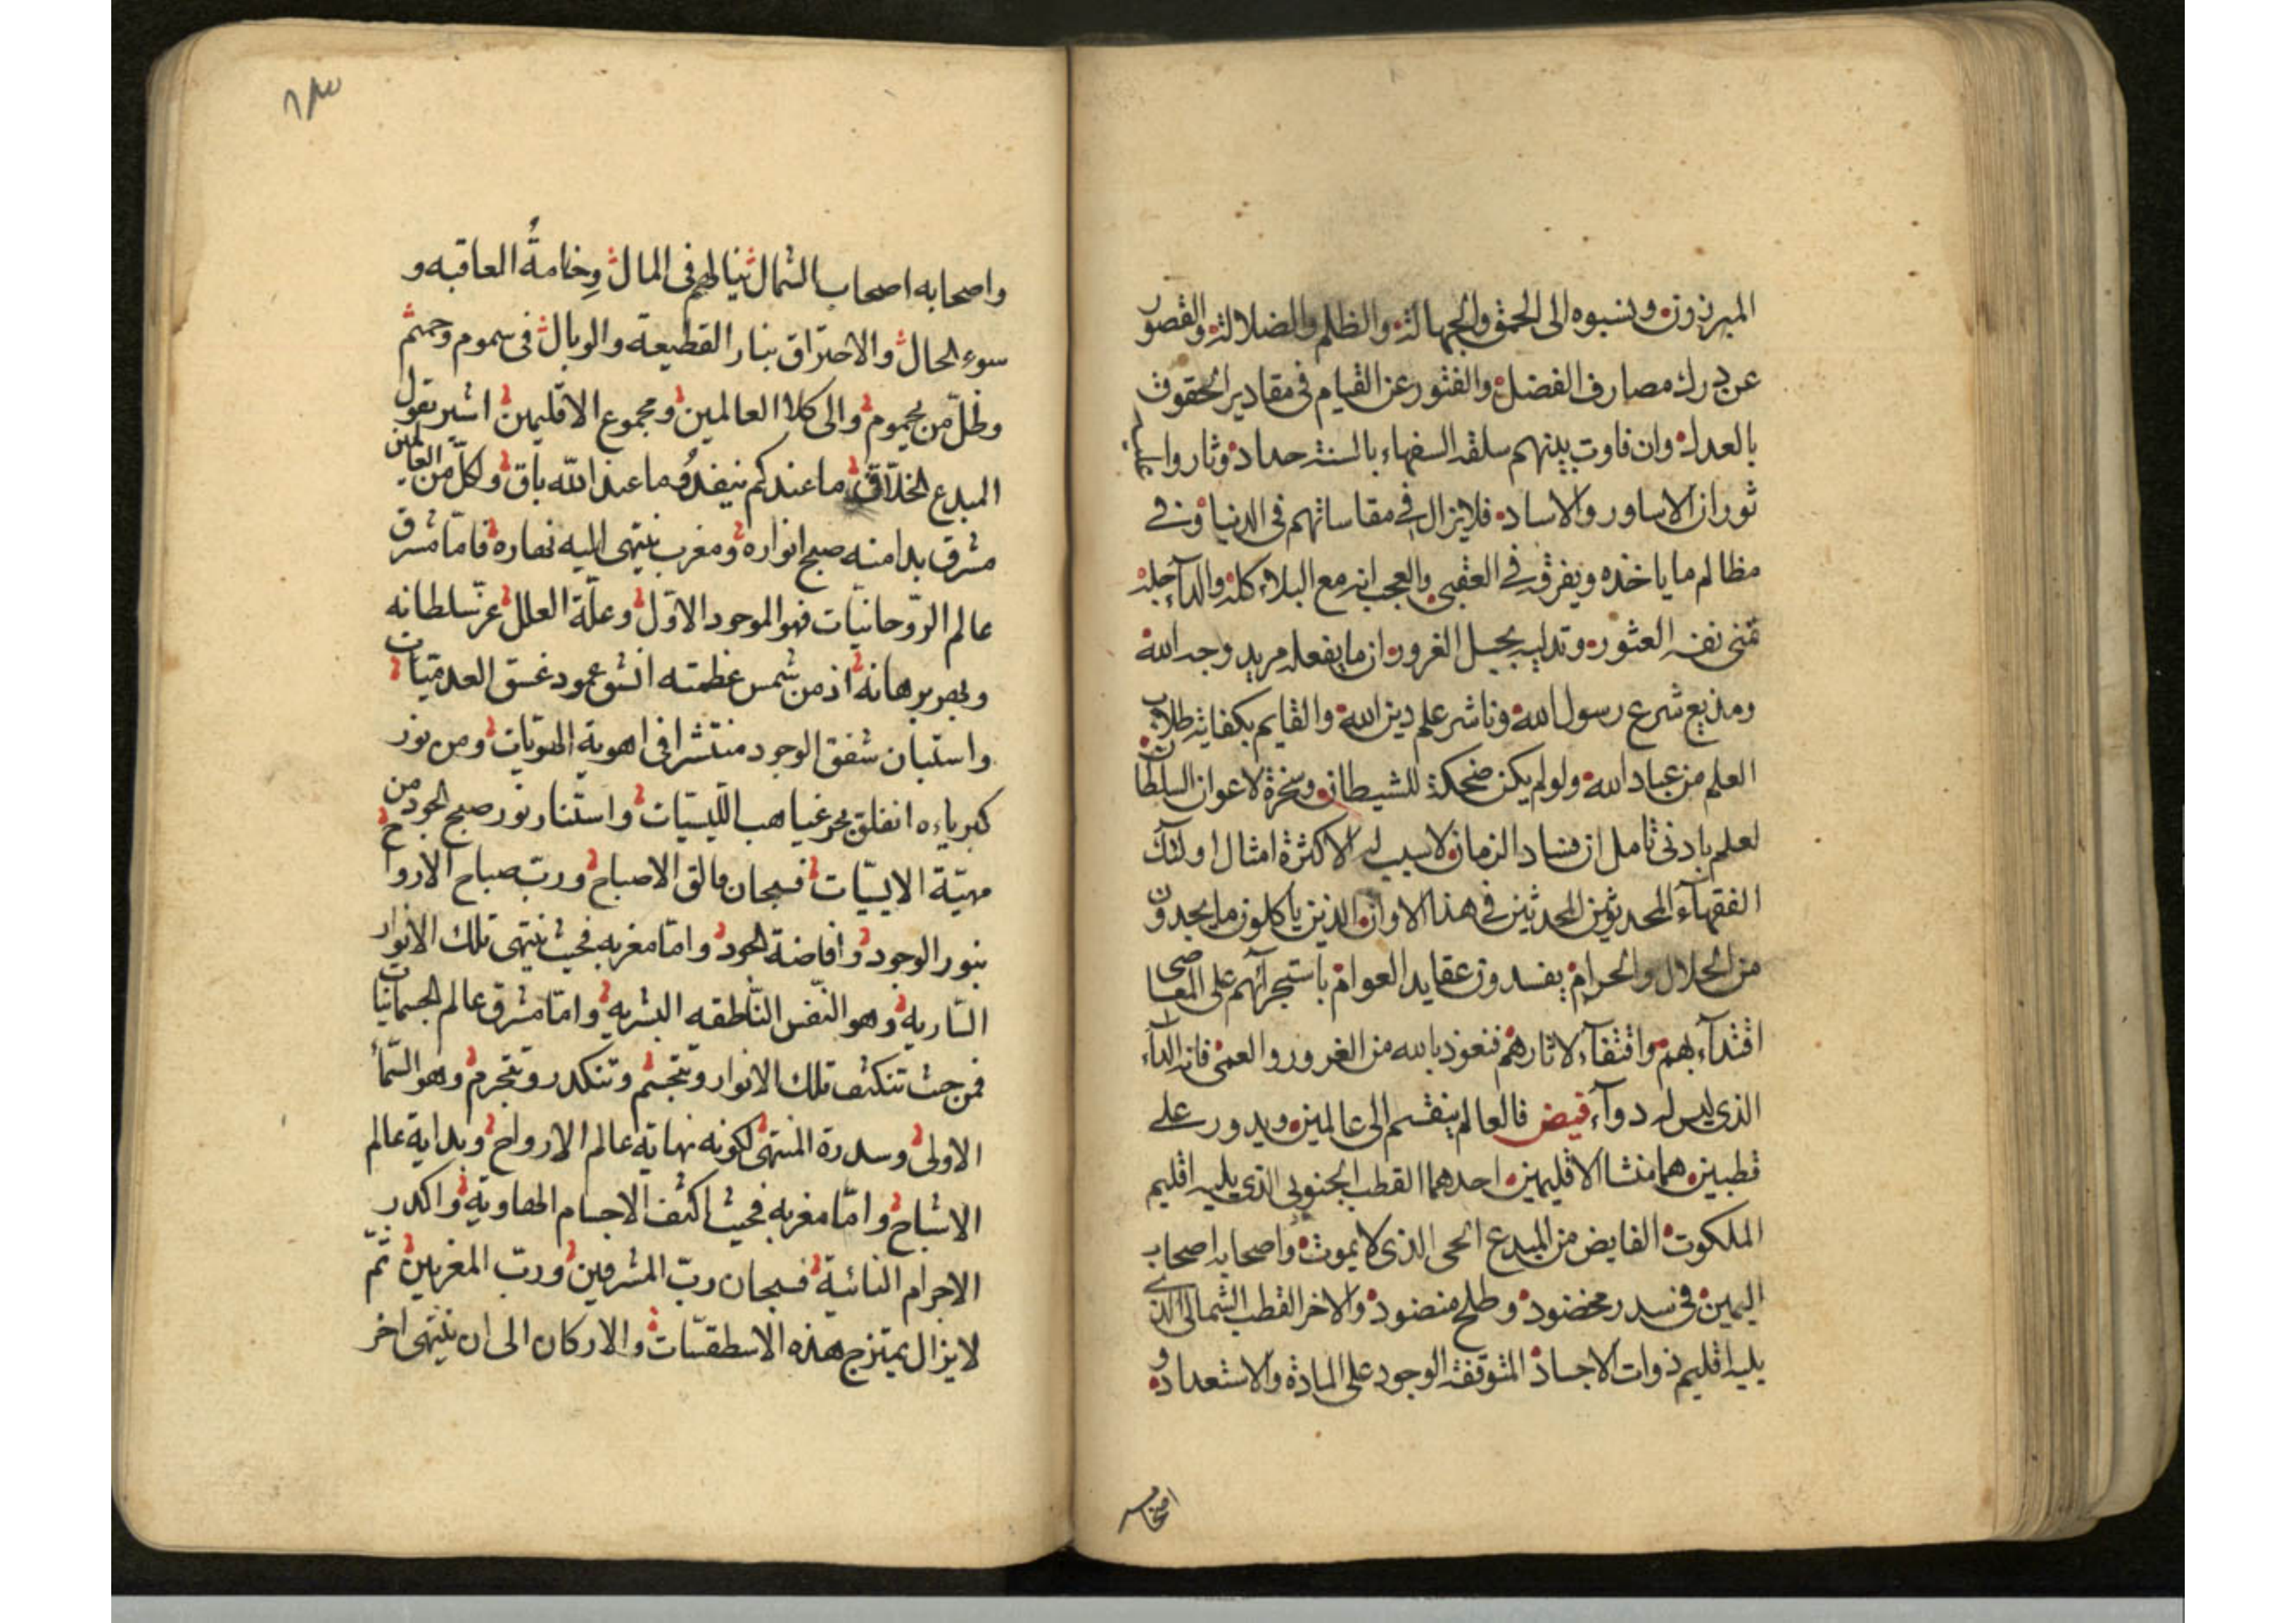 المبرزون وينسبوه الى الحمق والجهالة والظلم والضلالة والقصور
عن درك مصارف الفضل والفتور عن القيام فى مقادير الحقوق
بالعدل وان فاوت بينهم سلقه السفهاء بالسنة حداد وثاروا عليه
ثوران الاساور والاساد فلا يزال فى مقاساتهم فى الدنيا وفى
مظالم ما ياخذه ويفرقه فى العقبى والعجب انه مع البلاء كله والدآء جله
تمنى نفسه العثور وتدليه بحبل الغرور ان ما يفعله مريد وجه الله
ومذيع شرع رسول الله وناشر علم دين الله والقايم بكفاية طلاب
العلم من عباد الله ولو لم يكن ضحكة للشيطان وسخرة لاعوان السلطان
لعلم بادنى تامل ان فساد الزمان لا سبب له الا كثرة امثال اولئك
الفقهآء المحدثين المحدثين فى هذا الاوان الذين ياكلون ما يجدون
من الحلال والحرام يفسدون عقايد العوام باستجرآئهم على المعاصى
اقتدآء بهم واقتفآء لاثارهم فنعوذ بالله من الغرور والعمى فانه الدآء
الذى ليس له دوآء فيض فالعالم ينقسم الى عالمين ويدور على
قطبين هما منشا الاقليمين احدهما القطب الجنوبى الذى يليه اقليم
الملكوت الفايض من المبدع الحى الذى لا يموت واصحابه اصحاب
اليمين فى سدر مخضود وطلح منضود والاخر القطب الشمالى الذى
يليه اقليم ذوات الاجساد المتوقفة الوجود على المادة والاستعداد و
واصحابه اصحاب الشمال ينالهم فى المال وخامة العاقبه و
سوء الحال والاحتراق بنار القطيعة والوبال فى سموم وحميم
وظل من يحموم والى كلا العالمين ومجموع الاقليمين اشير بقول
المبدع الخلاق ما عندكم ينفد وما عند الله باق ولكل من العالمين
مشرق بدا منه صبح انواره ومغرب ينتهى اليه نهاره فاما مشرق
عالم الروحانيات فهو الموجود الاول وعلة العلل عز سلطانه
وبهر برهانه اذ من شمس عظمته انشق عمود غسق العدميات
واستبان شفق الوجود منتشرا فى اهوية الهويات ومن نور
كبرياءه انفلق بحر غياهب الليسيات واستنار نور صبح الجود من
مهية الايسيات فسبحان فالق الاصباح ورب صباح الارواح
بنور الوجود وافاضة الجود واما مغربه فحيث ينتهى تلك الانوار
الساريه وهو النفس الناطقه البشريه واما مشرق عالم الجسمانيات
فمن حيث تتكثف تلك الانوار وتتجسم وتتكدر وتتجرم وهو السمأ
الاولى وسدرة المنتهى لكونه نهاية عالم الارواح وبداية عالم
الاشباح واما مغربه فحيث اكثف الاجسام الهاويه واكدر
الاجرام النائية فسبحان رب المشرقين ورب المغربين ثم
لا يزال يمتزج هذه الاسطقسات والاركان الى ان ينتهى اخر